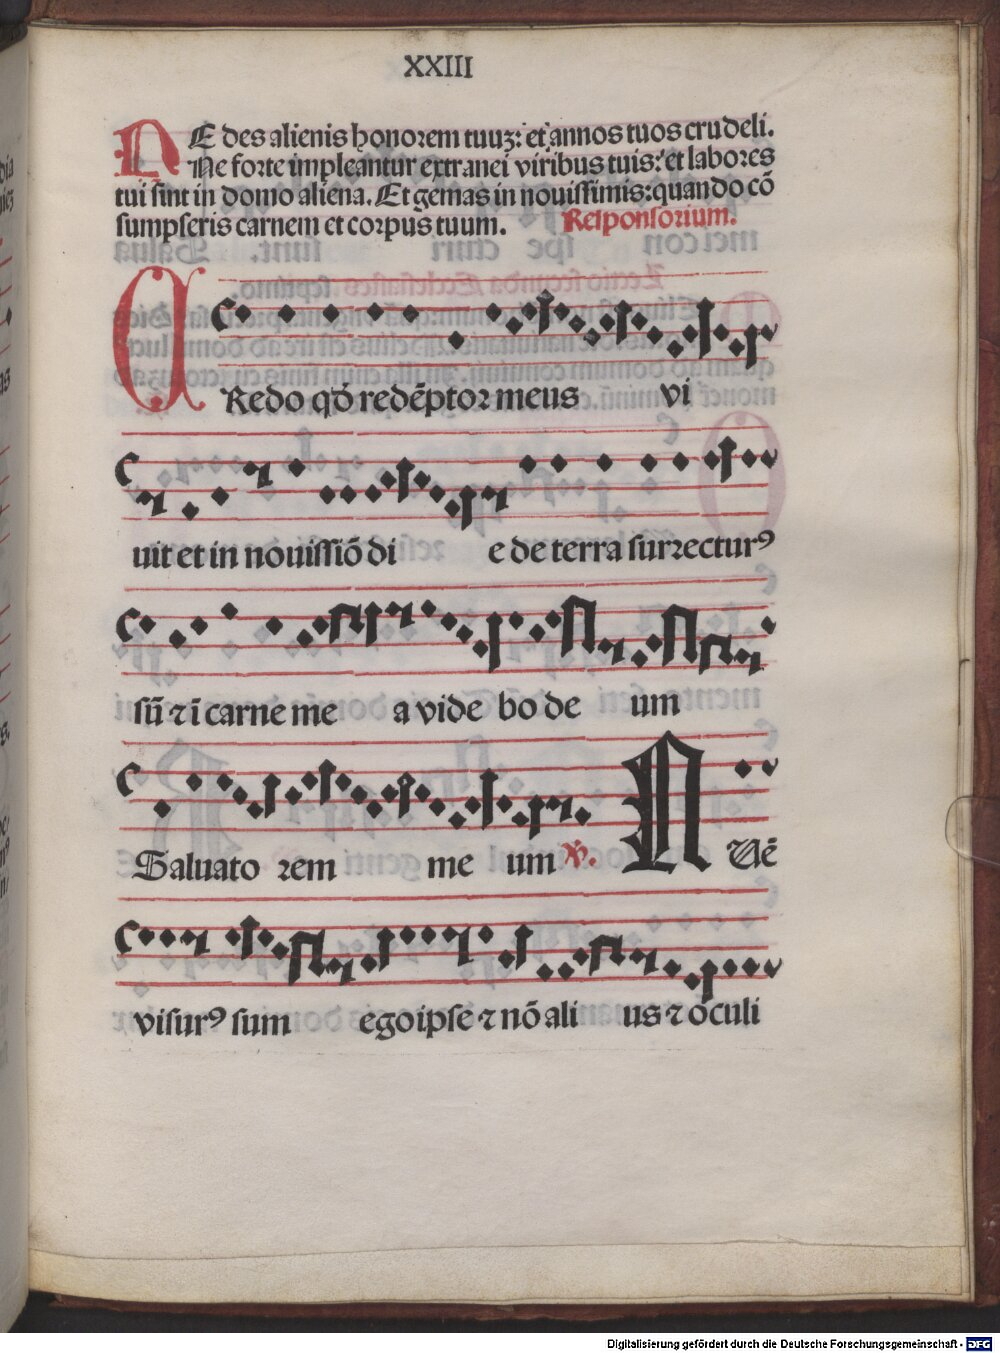 XXIII
NE des alienis honorem tuuʒ: et annos tuos crudeli.
Ne forte impleantur extranei viribus tuis: et labores
tui sint in domo aliena. Et gemas in nouissimis: quando cō
sumpseris carnem et corpus tuum. Responsorium.
CRedo qď redēptoꝛ meus vi
uit et in nouissiō di e de terra surrecturꝰ
sū ⁊ ī carne me a vide bo de um
Saluato rem me um ℣.
N Quē
visurꝰ sum ego ipse ⁊ nō ali us ⁊ oculi
Digitalisierung gefördert durch die Deutsche Forschungsgemeinschaft - DFG